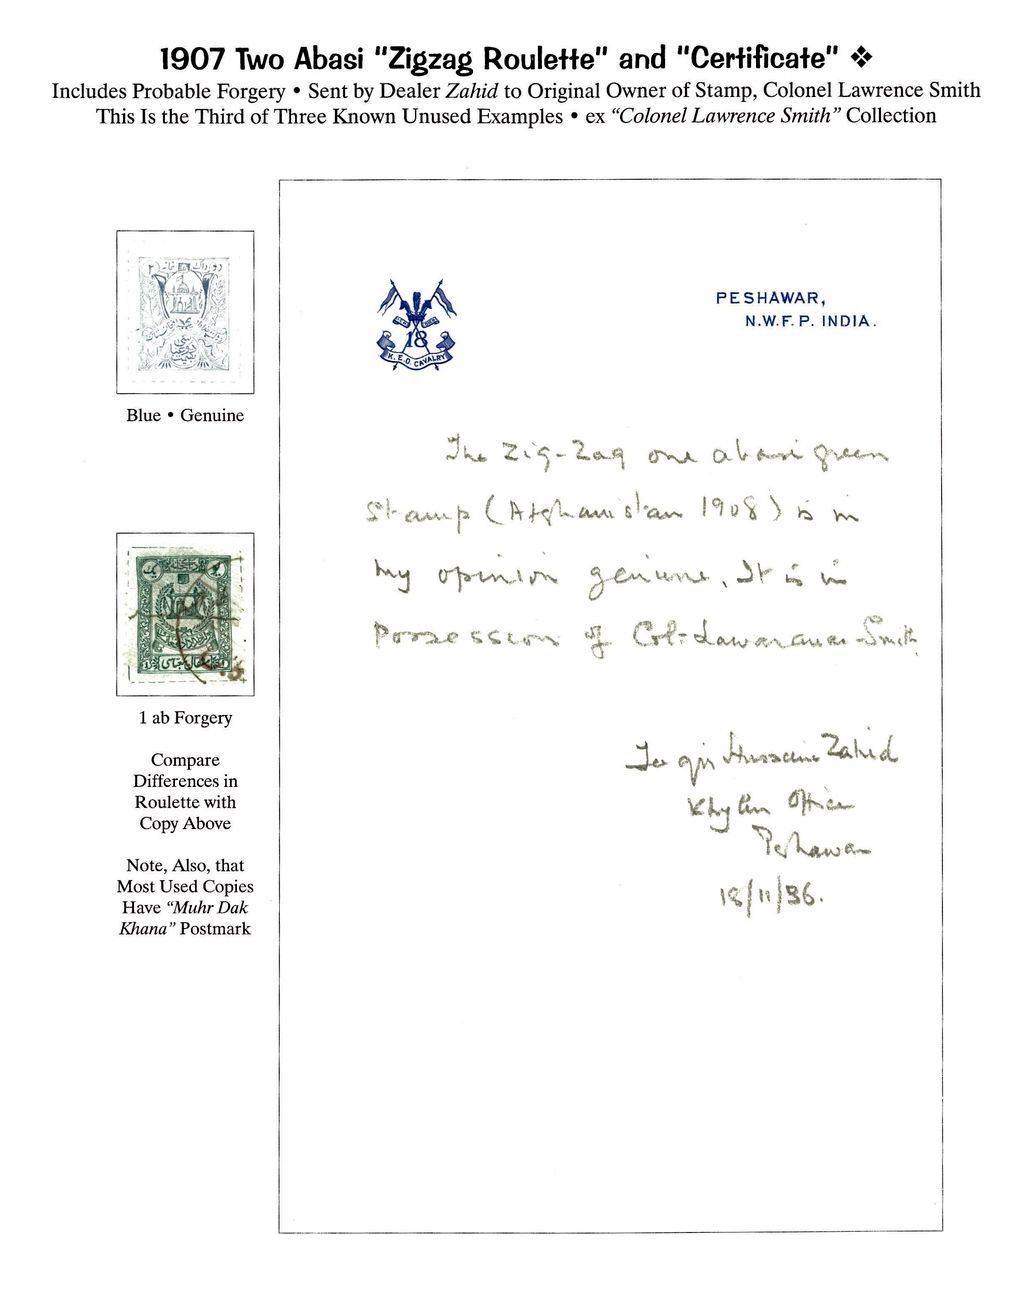 1907 Two Abasi "Zigzag Roulette" and "Certificate" ❖
Includes Probable Forgery • Sent by Dealer Zahid to Original Owner of Stamp, Colonel Lawrence Smith
This Is the Third of Three Known Unused Examples • ex "Colonel Lawrence Smith" Collection
Blue • Genuine
1 ab Forgery
Compare
Differences in
Roulette with
Copy Above
Note, Also, that
Most Used Copies
Have "Muhr Dak
Khana" Postmark
18
K.E.O. CAVALRY
PESHAWAR,
N.W.F.P. INDIA.
The Zig-Zag one abasi green
Stamp (Afghanistan 1908) is in
my opinion genuine, It is in
Possession of Col: Smith
Hussain Zahid
Office
Peshawar
18/11/36.